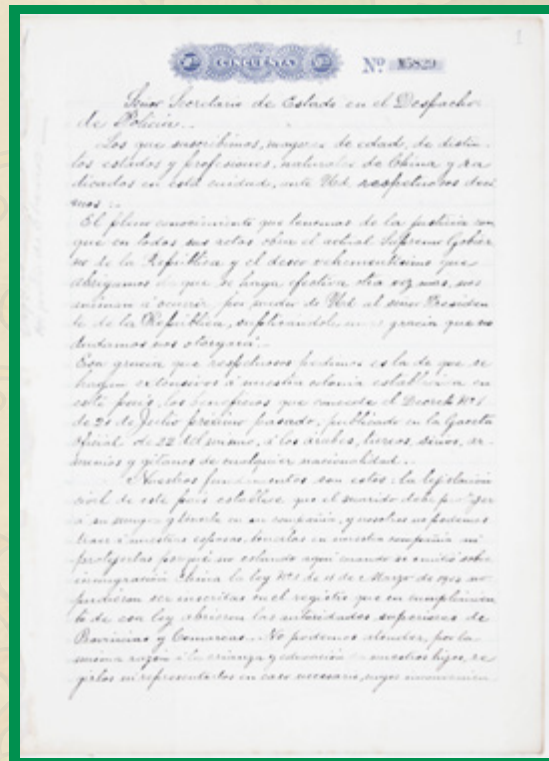 CINCUENTA Nº 15829 1
Señor Secretario de Estado en el Despacho
de Policía.
Los que suscribimos, mayores de edad, de distin-
tos estados y profesiones, naturales de China y ra-
dicados en esta ciudad, ante Ud. respetuosos deci
mos:
El pleno conocimiento que tenemos de la justicia con
que en todos sus actos obra el actual Supremo Gobier
no de la República y el deseo vehementísimo que
abrigamos de que se haga efectiva otra vez mas, nos
animan á ocurrir por medio de Ud. al señor Presiden
te de la República, suplicándole gracia que no
dudamos nos otorgará.
Esa gracia que respetuosos pedimos es la de que se
hagan extensivos á nuestra colonia establecida en
este país, los beneficios que concede el Decreto Nº 1
de 20 de Julio próximo pasado, publicado en la Gaceta
Oficial de 22 del mismo, á los árabes, turcos, sirios, ar-
menios y gitanos de cualquier nacionalidad.
Nuestros fundamentos son estos: la legislación
civil de este país establece que el marido debe proteger
á su mujer y tenerla en su compañía, y nosotros no podemos
traer á nuestras esposas, tenerlas en nuestra compañía ni
protejerlas porque no estando aquí cuando se emitió sobre
inmigración China la ley Nº 6 de 11 de Marzo de 1904 no
pudieron ser inscritas en el registro que en cumplimien
to de esa ley abrieron las autoridades superiores de
Provincias y Comarcas. No podemos atender, por la
misma razón á la crianza y educación de nuestros hijos, re
girlos ni representarlos en caso necesario,